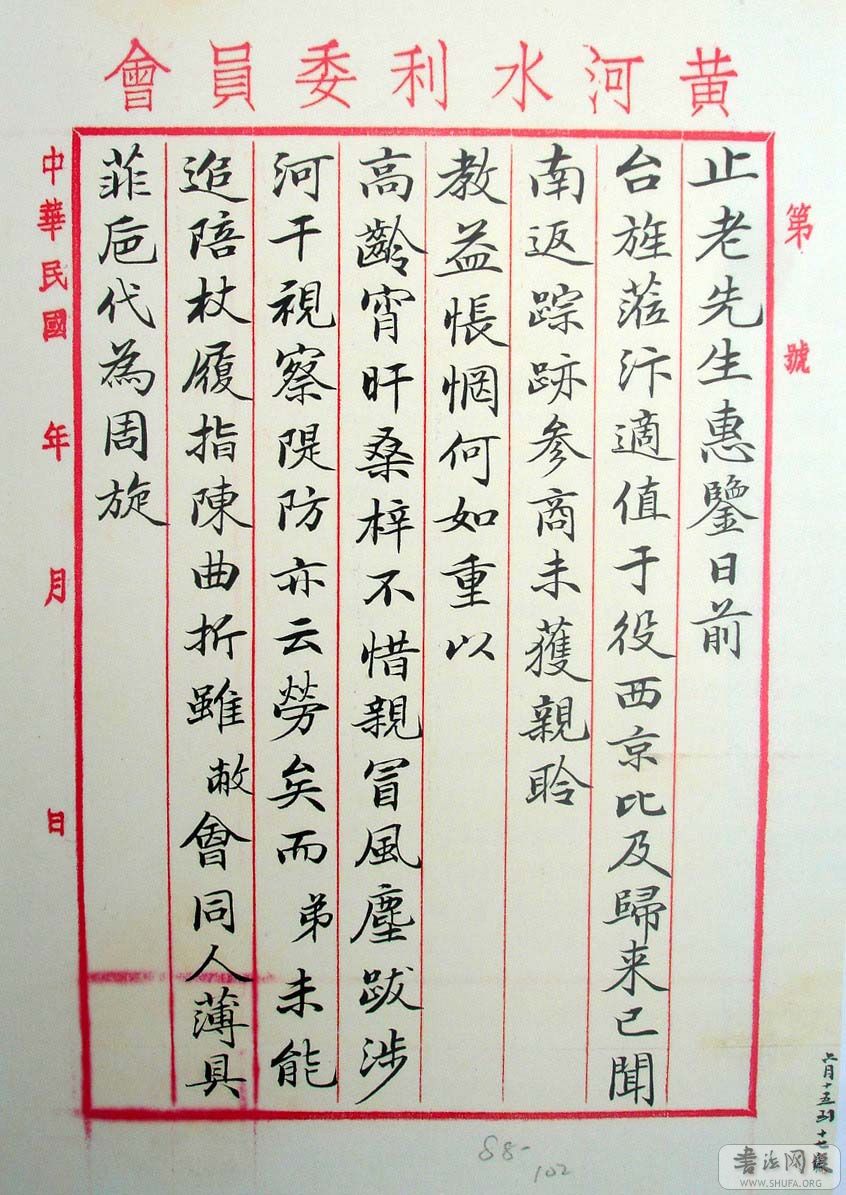 黃河水利委員會
第　號
止老先生惠鑒日前
台旌蒞汴適值于役西京比及歸来已聞
南返踪跡參商未獲親聆
教益悵惘何如重以
高齡宵旰桑梓不惜親冒風塵跋涉
河干視察隄防亦云勞矣而弟未能
追陪杖履指陳曲折雖敝會同人薄具
菲卮代為周旋
中華民國　年　月　日
六月十五到 十七
88-
102
書法网
WWW.SHUFA.ORG